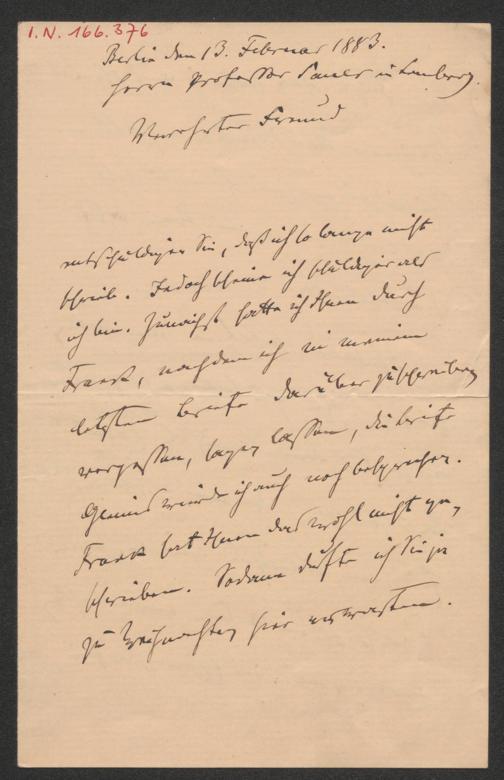 I.N. 166.376
Berlin den 13. Februar 1883.
Herrn Professor Sauer in Lemberg.
Verehrter Freund
entschuldigen Sie, daß ich so lange nicht
schrieb. Jedoch scheine ich schuldiger als
ich bin. Zunächst hatte ich Ihnen durch
Franck, nachdem ich in meinem
letzten Briefe darüber zu schreiben
vergessen, sagen lassen, die Briefe
Gleims würde ich auch noch besprechen.
Franck hat Ihnen das wohl nicht ge-
schrieben. Sodann dürfte ich Sie ja
zu Weihnachten hier erwarten.